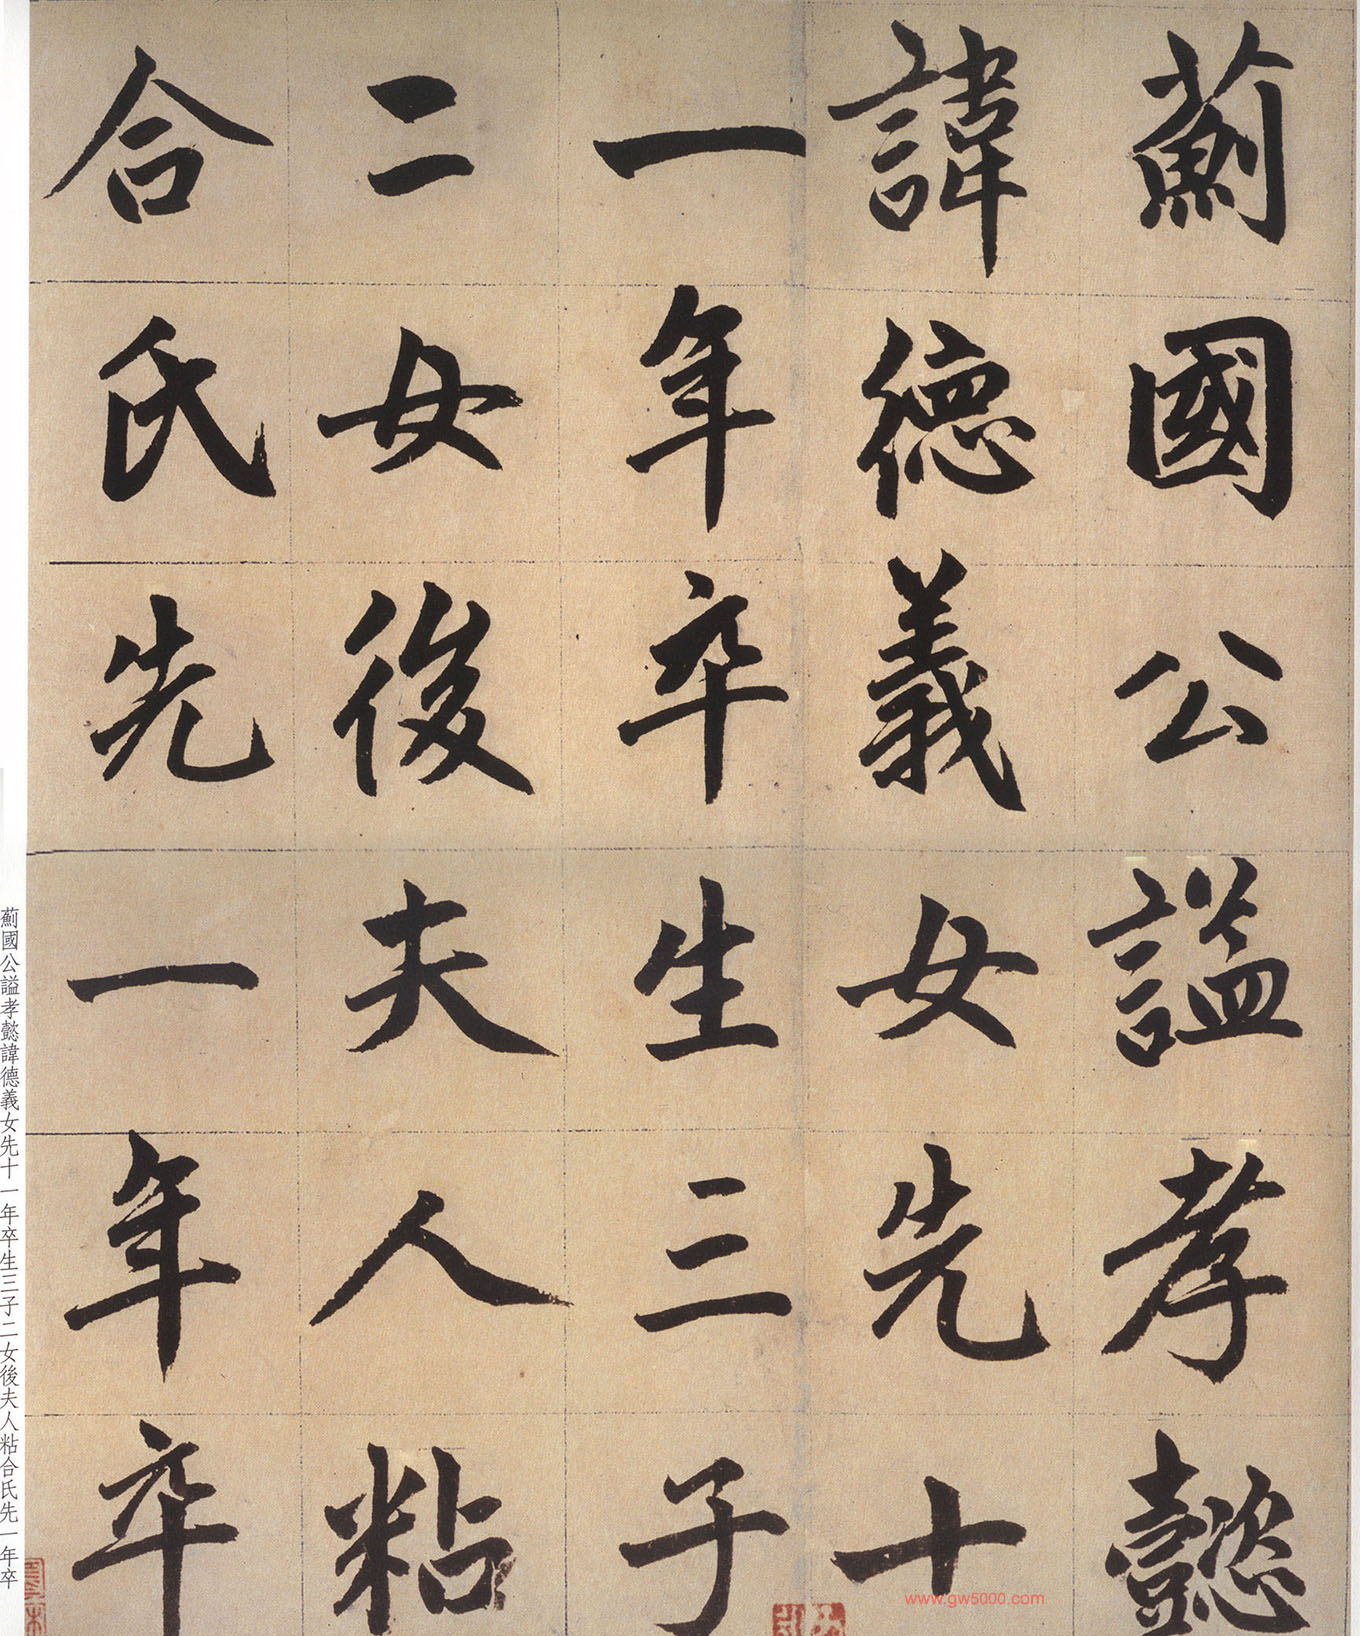 薊國公謚孝懿
諱德義女先十
一年卒生三子
二女後夫人粘
合氏先一年卒
薊國公謚孝懿諱德義女先十一年卒生三子二女後夫人粘合氏先一年卒
www.gw5000.com